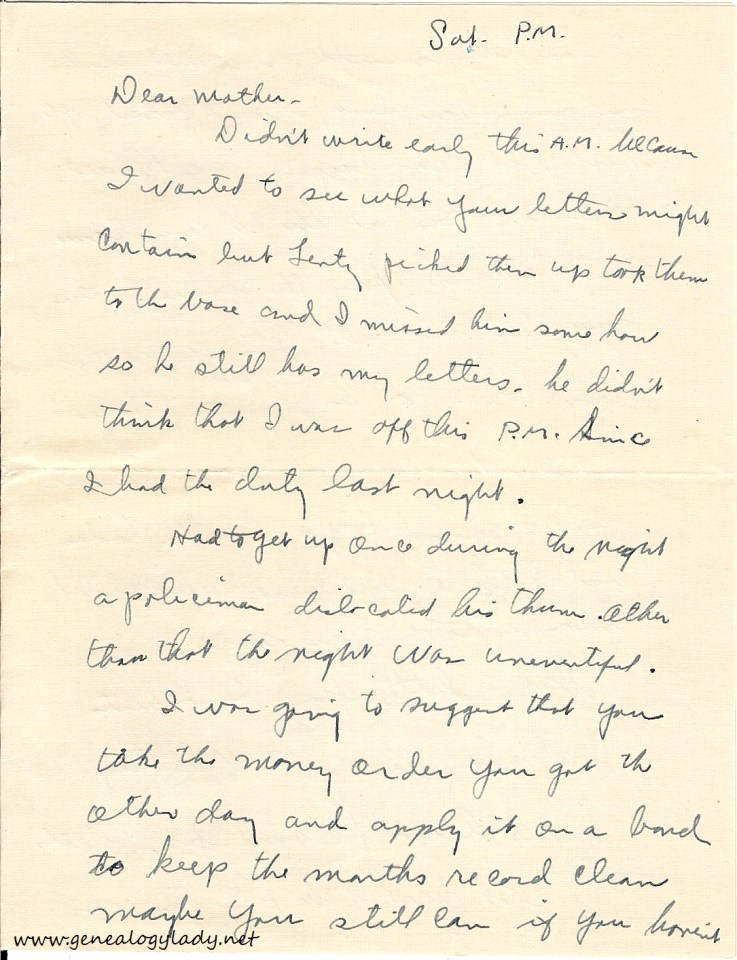 Sat. P.M.
Dear Mother-
Didn't write early this A.M. because
I wanted to see what your letters might
contain but Lenty picked them up took them
to the base and I missed him some how
so he still has my letters. he didn't
think that I was off this P.M. since
I had the duty last night.
Had to get up once during the night
a policiman dislocated his thum. Other
than that the night was uneventful.
I was going to suggest that you
take the money order you got the
other day and apply it on a bond
to keep the months record clean
maybe you still can if you haven't
www.genealogylady.net